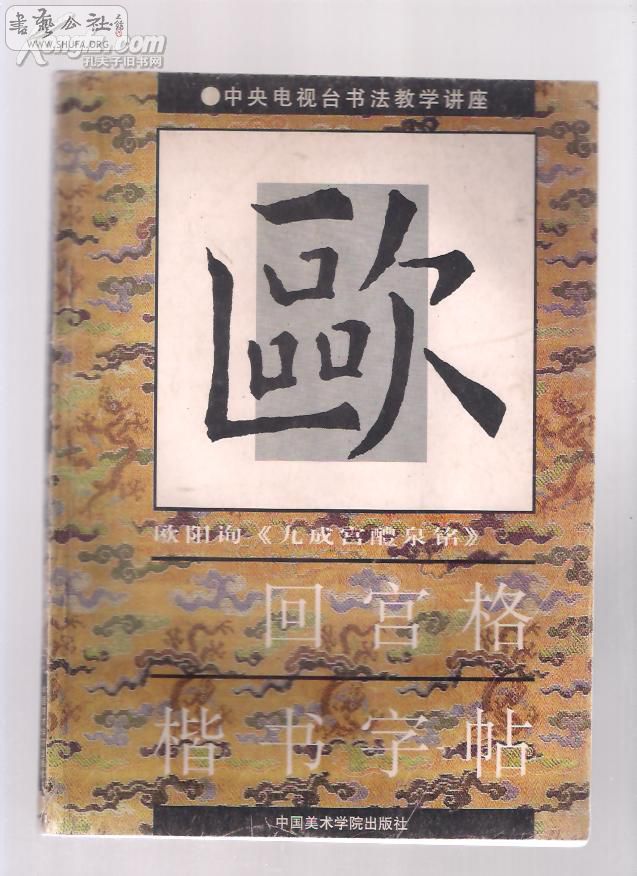 書藝公社
WWW.SHUFA.ORG
孔夫子旧书网
●中央电视台书法教学讲座
歐
欧阳询《九成宫醴泉铭》
回宫格
楷书字帖
中国美术学院出版社